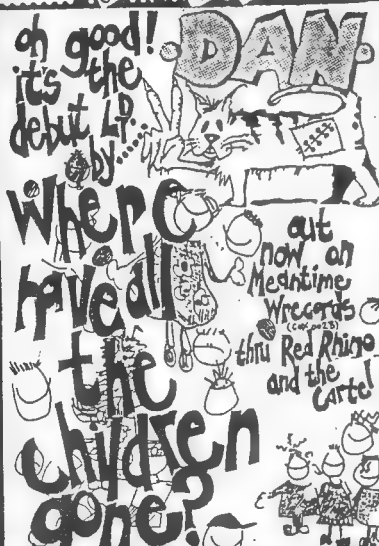 oh good!
it's the
debut L.P.
by.....
DAN
Where
have all
the
children
gone?
out
now on
Meantime
Wrecords
thru Red Rhino
and the
Cartel